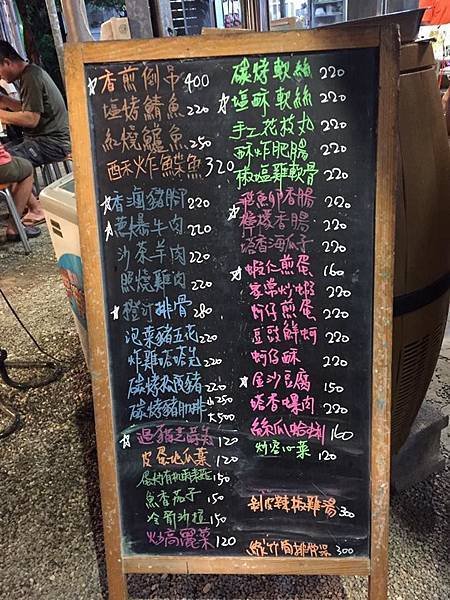 ☆香煎倒吊 400
塩烤鯖魚 220
紅燒鱸魚 250
酥炸鮮魚 320
☆香滷豬腳 220
☆蔥爆牛肉 220
沙茶羊肉 220
照燒雞肉 220
☆橙汁排骨 280
泡菜豬五花 220
炸雞 220
碳烤松阪豬 220
碳烤豬肋排 小250
大500
☆ 120
皮蛋地瓜葉 120
150
魚香茄子 150
冷筍沙拉 150
炒高麗菜 120
碳烤軟絲 220
☆塩酥軟絲 220
手工花枝丸 220
酥炸肥腸 220
椒塩雞軟骨 220
☆飛魚卵香腸 220
檸檬香腸 220
塔香海瓜子 220
☆蝦仁煎蛋 160
家常炒蝦 220
蚵仔煎蛋 220
豆豉鮮蚵 220
蚵仔酥 220
☆金沙豆腐 150
塔香螺肉 220
絲瓜蛤蜊 160
炒 120
剝皮辣椒雞湯 300
竹筍排骨湯 300